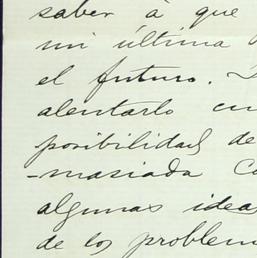 saber á que
mi última
el futuro.
alentarlo en
posibilidad de
-masiada
algunas ideas
de los problem